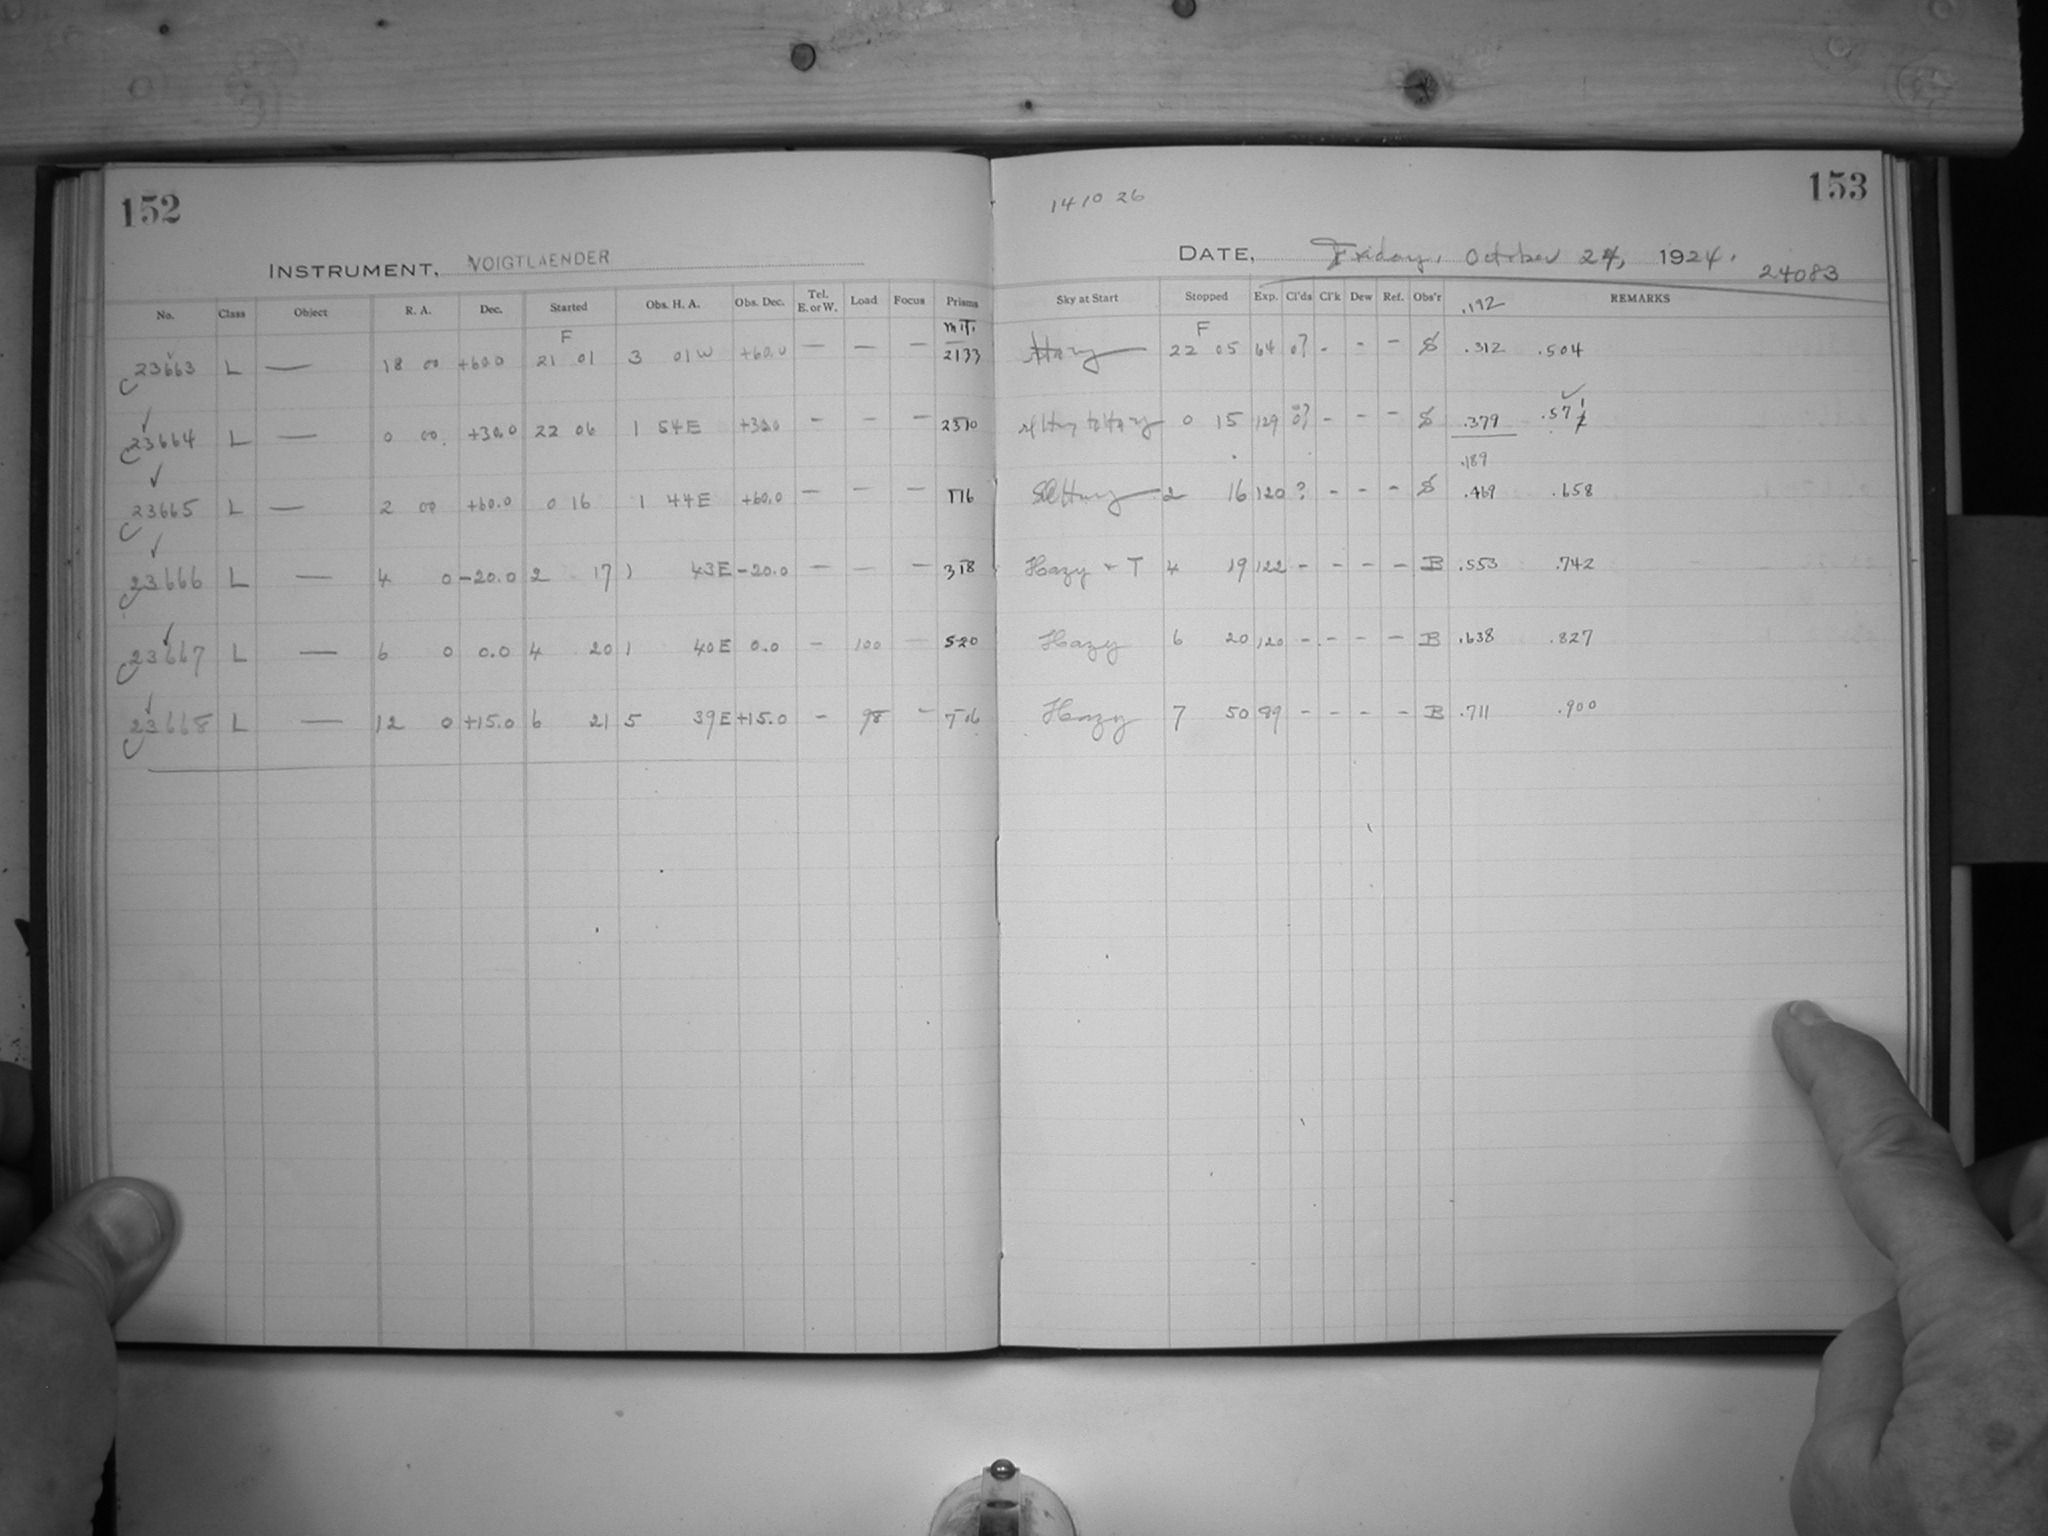 152
INSTRUMENT, VOIGTLAENDER
No. Class Object R. A. Dec. Started Obs. H. A. Obs. Dec. Tel. E. or W. Load Focus Prisms
F M.T.
23663 L — 18 00 +60.0 21 01 3 01 W +60.0 — — — 2133
23664 L — 0 00 +30.0 22 06 1 54 E +30.0 — — — 2310
23665 L — 2 00 +60.0 0 16 1 44 E +60.0 — — — 116
23666 L — 4 0 -20.0 2 17 1 43 E -20.0 — — — 318
23667 L — 6 0 0.0 4 20 1 40 E 0.0 - 100 — 520
23668 L — 12 0 +15.0 6 21 5 39 E +15.0 - 98 -
153
14 10 26
DATE, Friday, October 24, 1924.
24083
Sky at Start Stopped Exp. Cl'ds Cl'k Dew Ref. Obs'r .192 REMARKS
F
Hazy 22 05 64 0? - - - S .312 .504
0 15 129 0? - - - S .379 .571
.189
Sl Hazy 2 16 120 ? - - - S .469 .658
Hazy + T 4 19 122 - - - - B .553 .742
Hazy 6 20 120 - - - - B .638 .827
Hazy 7 50 89 - - - - B .711 .900